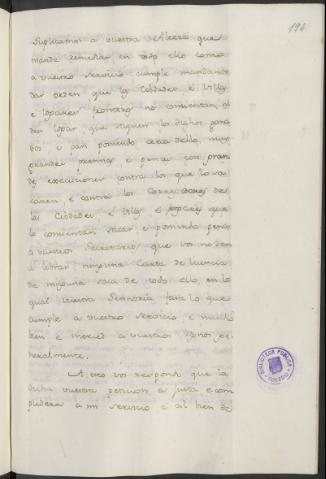 196
suplicamos a vuestra Alteza que
mande remediar en todo ello como
a vuestro servicio cumple mandando
dar orden que las Cibdades, é Villas
e logares no consientan, ni
den logar que saquen los dichos gana
dos e pan poniendo cerca dello, muy
grandes penas, e penar con gran
des execuciones contra los que lo sa
caren, e contra los Corregidores de
las Cibdades, é Villas e logares que
lo consientan sacar e poniendo penas
a vuestros Secretarios, que vos no den
a librar ninguna Carta de licencia
de ninguna saca de todo ello, en lo
qual vuestra Señoria fara lo que
cumple a vuestro servicio e mucho
bien e merced a vuestros Regnos, ge
neralmente.
A esto vos respondo que la
dicha vuestra peticion es justa e com
plidera a mi servicio e al bien de
BIBLIOTECA PUBLICA
TOLEDO